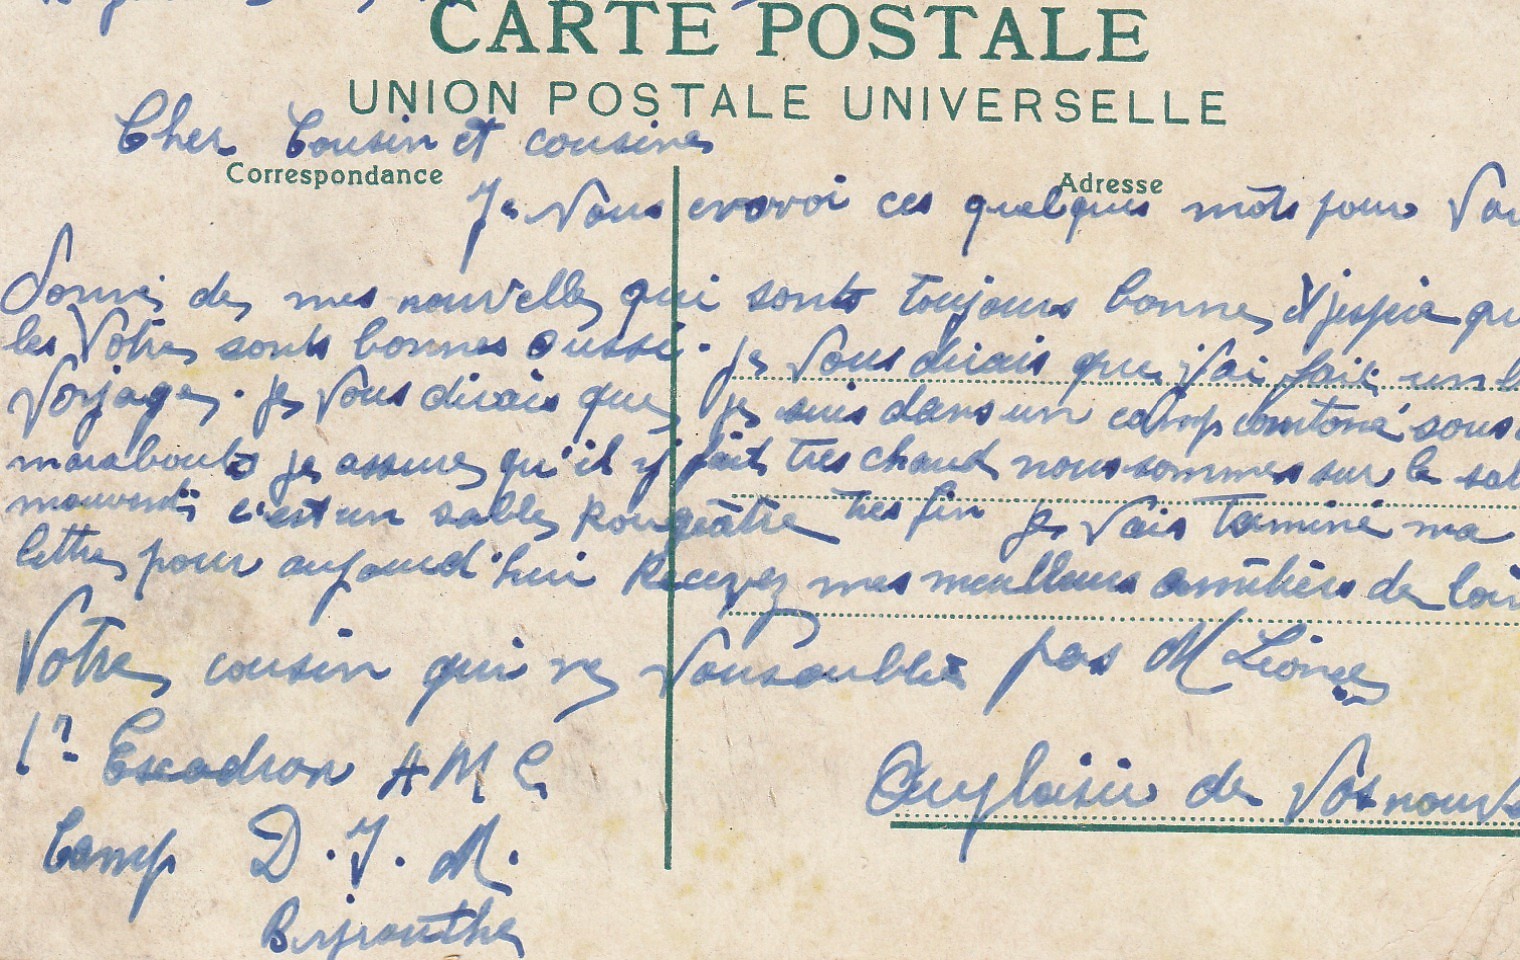 CARTE POSTALE
UNION POSTALE UNIVERSELLE
Cher Cousin et cousine
Correspondance
Adresse
Je Vous envoi ces quelques mots pour
donné de mes nouvelles qui sonts toujours bonne, et j'espie
les Votre, sonts bonnes aussi. je Vous dirais que j'ai fait un
Voyage. je Vous dirais que je suis dans un camp sous
marabouts je assure qu'il y fait tres chaud nous sommes sur le
mouvents c'est un sable Rougeâtre tres fin je Vais terminé ma
lettre pour aujourd'hui Recevez mes meilleurs amitiers de
Votre cousin qui ne Vous oublie pas M Léonce
1r Escadron A M C
Au plaisir de Vos
Camp D. J. M.
Beyrouthe